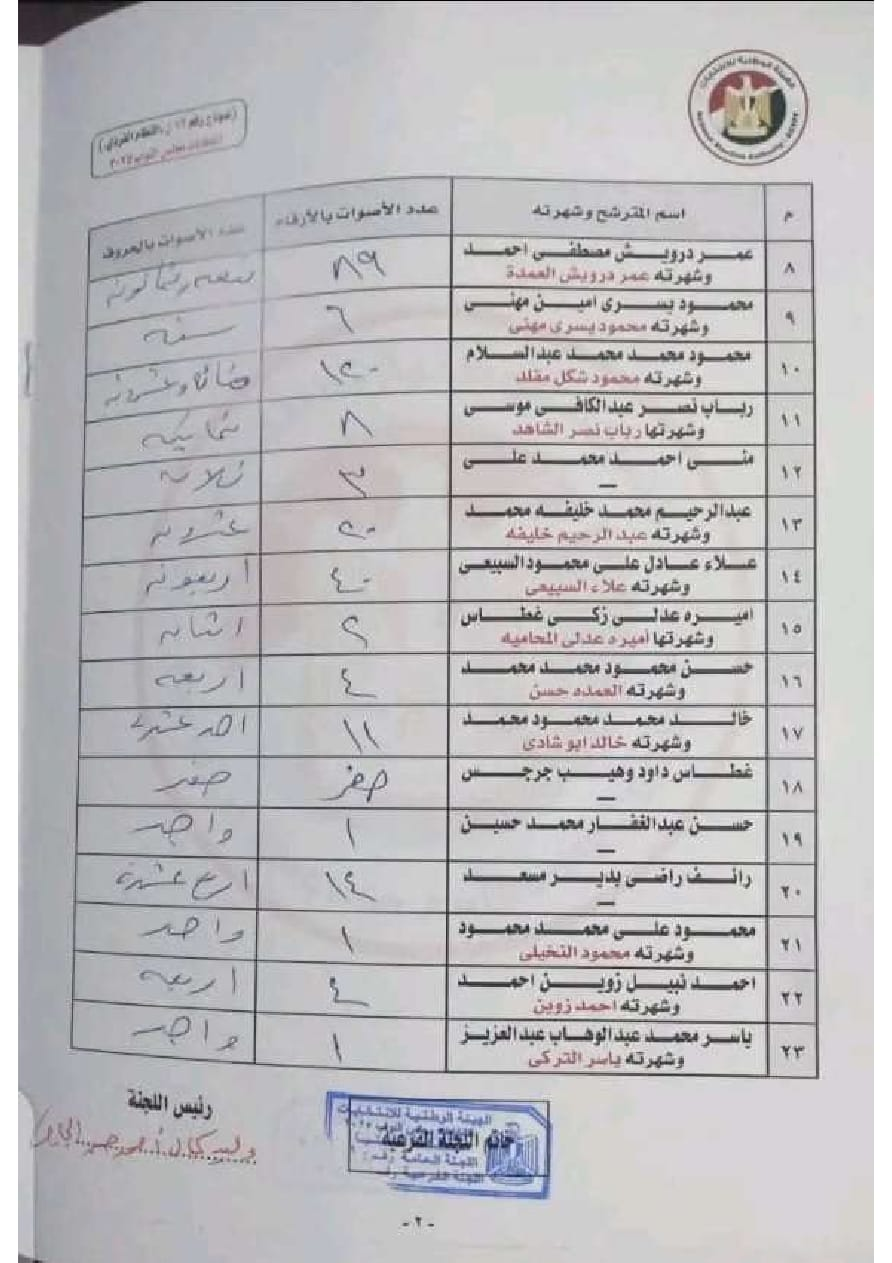 الهيئة الوطنية للانتخابات
National Election Authority - EGYPT
(نموذج رقم ١٢ ن. النظام الفردى)
انتخابات مجلس النواب ٢٠٢٥
م | اسم المترشح وشهرته | عدد الأصوات بالأرقام | عدد الأصوات بالحروف
٨ | عمر درويش مصطفى احمد | ٨٩ | تسعه وثمانونه
وشهرته عمر درويش العمدة
٩ | محمود يسرى امين مهنى | ٦ | سته
وشهرته محمود يسرى مهنى
١٠ | محمود محمد محمد عبدالسلام | ١٢٠ | مائه وعشرونه
وشهرته محمود شكل مقلد
١١ | رباب نصر عبدالكافى موسى | ٨ | ثمانيه
وشهرتها رباب نصر الشاهد
١٢ | منى احمد محمد على | ٣ | ثلاثه
—
١٣ | عبدالرحيم محمد خليفه محمد | ٢٠ | عشرونه
وشهرته عبد الرحيم خليفه
١٤ | علاء عادل على محمود السبيعى | ٤٠ | أربعونه
وشهرته علاء السبيعى
١٥ | اميره عدلى زكى غطاس | ٢ | اثنانه
وشهرتها أميره عدلى المحاميه
١٦ | حسن محمود محمد محمد | ٤ | اربعه
وشهرته العمده حسن
١٧ | خالد محمد محمود محمد | ١١ | احد عشر
وشهرته خالد ابو شادى
١٨ | غطاس داود وهيب جرجس | صفر | صفر
—
١٩ | حسن عبدالغفار محمد حسين | ١ | واحد
—
٢٠ | رائف راضى بدير مسعد | ١٤ | اربع عشر
—
٢١ | محمود على محمد محمود | ١ | واحد
وشهرته محمود النخيلى
٢٢ | احمد نبيل زوين احمد | ٤ | اربعه
وشهرته احمد زوين
٢٣ | ياسر محمد عبدالوهاب عبدالعزيز | ١ | واحد
وشهرته ياسر التركى
رئيس اللجنة
خاتم اللجنة الفرعية
الهيئة الوطنية للانتخابات
اللجنة العامة رقم
اللجنة الفرعية رقم
- ٢ -